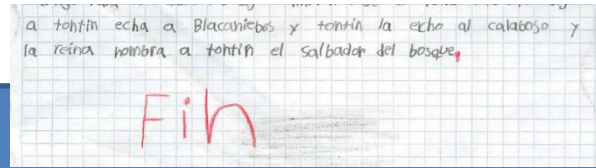 a tontin echa a Blacaniebes y tontin la echo al calaboso y
la reina nombra a tontin el salbador del bosque,
Fin